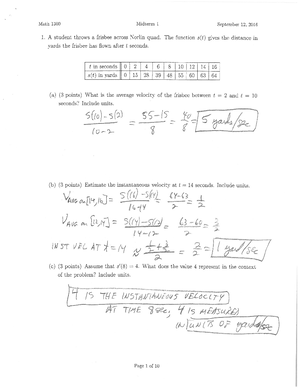 Math 1300 Midterm 1 September 12, 2016
1. A student throws a frisbee across Norlin quad. The function s(t) gives the distance in
yards the frisbee has flown after t seconds.
t in seconds 0 2 4 6 8 10 12 14 16
s(t) in yards 0 15 28 39 48 55 60 63 64
(a) (3 points) What is the average velocity of the frisbee between t = 2 and t = 10
seconds? Include units.
S(10)-S(2) / 10-2 = 55-15 / 8 = 40 / 8 = 5 yards/sec
(b) (3 points) Estimate the instantaneous velocity at t = 14 seconds. Include units.
VAVG on [14,16] = S(16)-S(14) / 16-14 = 64-63 / 2 = 1/2
VAVG on [12,14] = S(14)-S(12) / 14-12 = 63-60 / 2 = 3/2
INST VEL AT t=14 ≈ 1/2+3/2 / 2 = 2/2 = 1 yard/sec
(c) (3 points) Assume that s'(8) = 4. What does the value 4 represent in the context
of the problem? Include units.
4 IS THE INSTANTANEOUS VELOCITY
AT TIME 8 sec, 4 IS MEASURED
IN UNITS OF yards/sec
Page 1 of 10